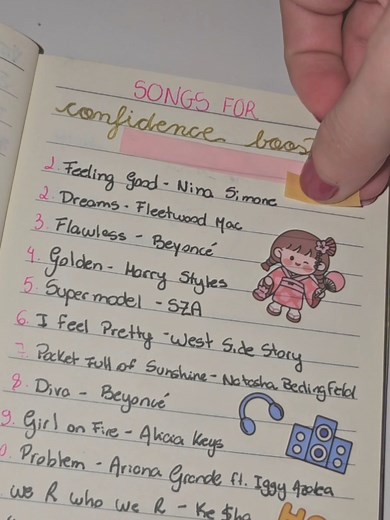 SONGS FOR
confidence boos
1. Feeling Good - Nina Simone
2. Dreams - Fleetwood Mac
3. Flawless - Beyoncé
4. Golden - Harry Styles
5. Supermodel - SZA
6. I Feel Pretty - West Side Story
7. Pocket Full of Sunshine - Natasha Bedingfeld
8. Diva - Beyoncé
9. Girl on Fire - Alicia Keys
0. Problem - Ariana Grande ft. Iggy Azalea
we R who we R - Ke$ha